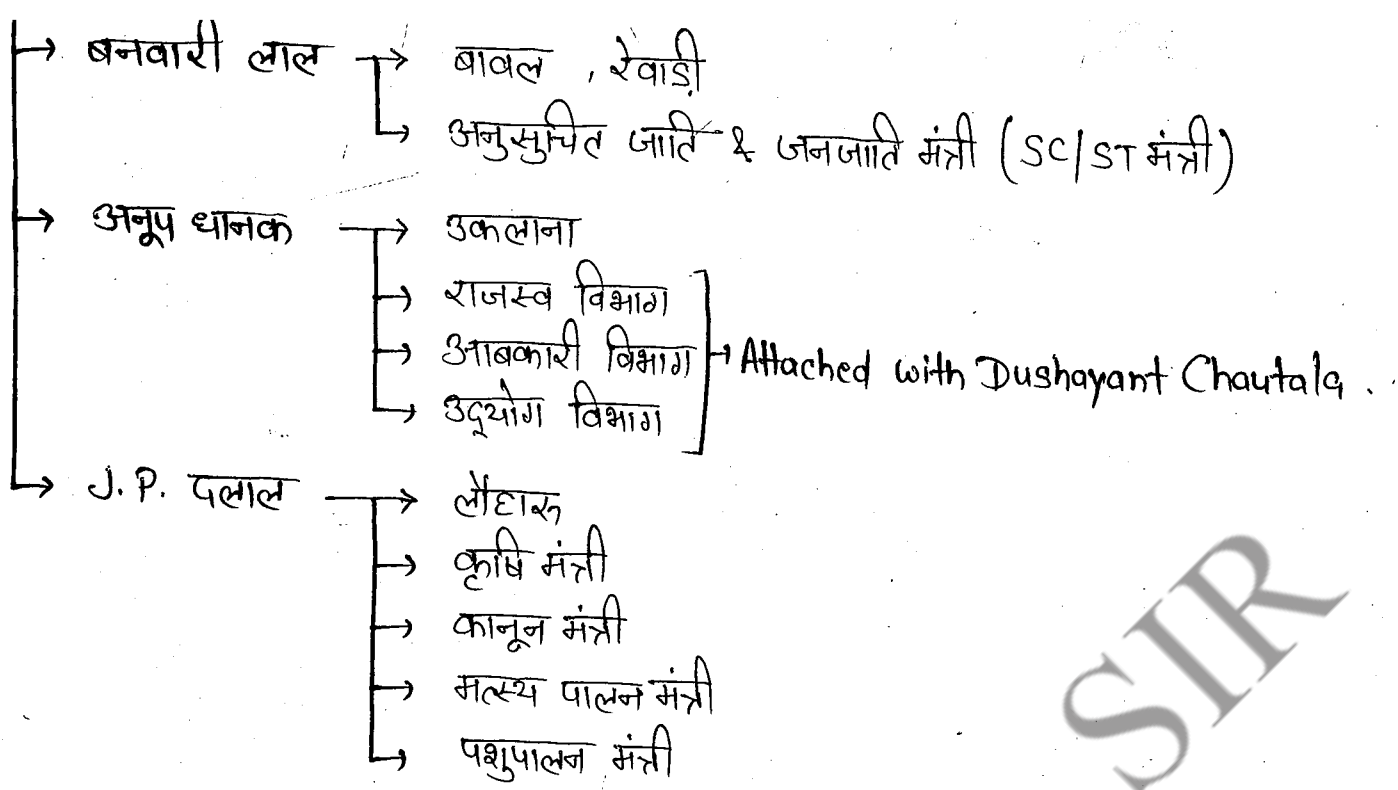 बनवारी लाल → बावल , रेवाड़ी
→ अनुसुचित जाति & जनजाति मंत्री (SC/ST मंत्री)
अनूप धानक → उकलाना
→ राजस्व विभाग
→ आबकारी विभाग → Attached with Dushayant Chautala .
→ उद्योग विभाग
J.P. दलाल → लौहारू
→ कृषि मंत्री
→ कानून मंत्री
→ मत्स्य पालन मंत्री
→ पशुपालन मंत्री
SIR